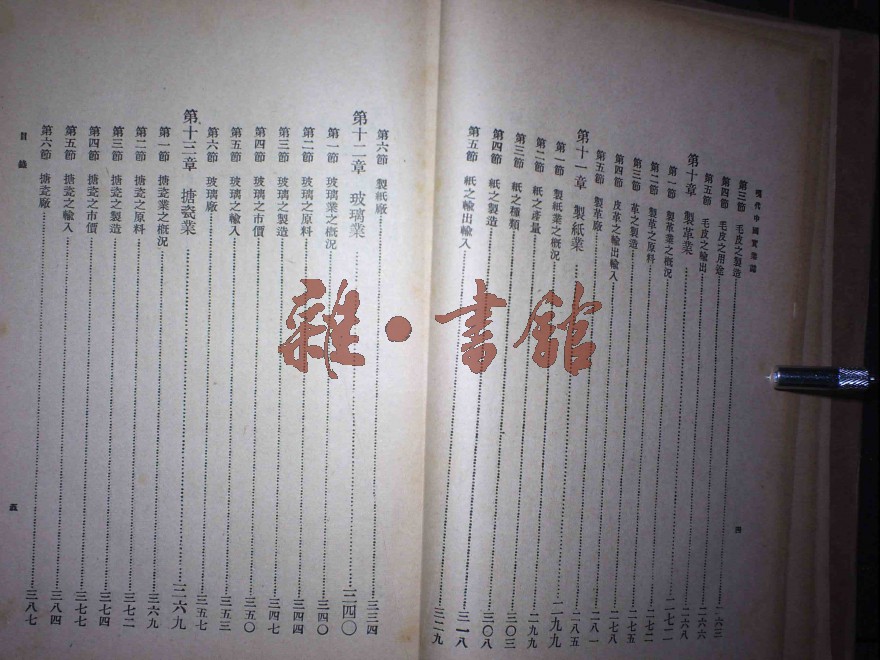 現代中國實業誌
第三節 毛皮之製造 二六三
第四節 毛皮之用途 二六六
第五節 毛皮之輸出 二六八
第十章 製革業 二七二
第一節 製革業之概況 二七二
第二節 製革之原料 二七五
第三節 革之製造 二七八
第四節 皮革之輸出輸入 二八一
第五節 製革廠 二八五
第十一章 製紙業 二九九
第一節 製紙業之概況 二九九
第二節 紙之產量 三〇三
第三節 紙之種類 三〇八
第四節 紙之製造 三一八
第五節 紙之輸出輸入 三二九
四
第六節 製紙廠 三三四
第十二章 玻璃業 三四〇
第一節 玻璃業之概況 三四〇
第二節 玻璃之原料 三四四
第三節 玻璃之製造 三四七
第四節 玻璃之市價 三五〇
第五節 玻璃之輸入 三五三
第六節 玻璃廠 三五七
第十三章 搪瓷業 三六九
第一節 搪瓷業之概況 三六九
第二節 搪瓷之原料 三七二
第三節 搪瓷之製造 三七四
第四節 搪瓷之市價 三七七
第五節 搪瓷之輸入 三八四
第六節 搪瓷廠 三八七
目錄
五
雜·書館